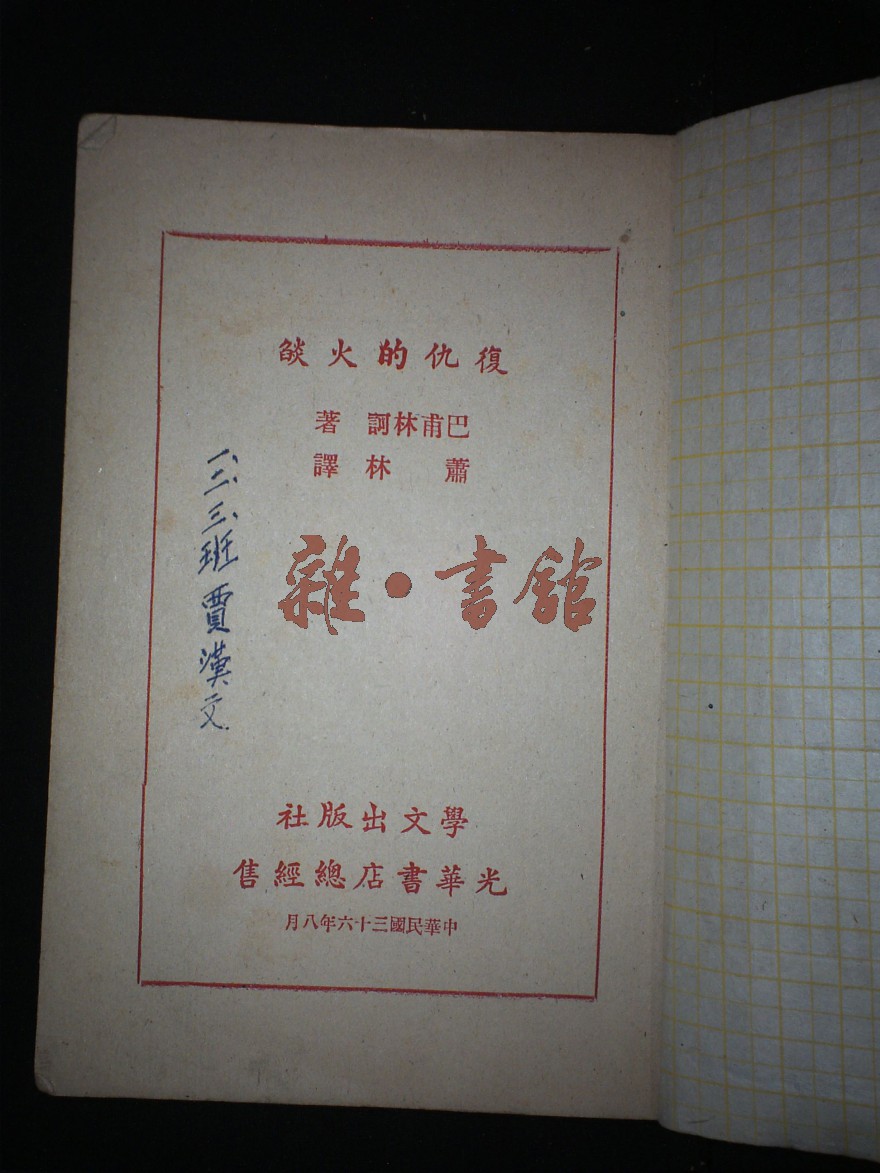 復仇的火燄
巴甫林訶 著
蕭林 譯
雜·書館
學文出版社
光華書店總經售
中華民國三十六年八月
一、二、三、班 賈漢文